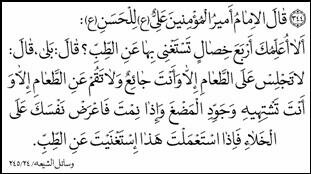 (٣٤٤) قَالَ الإِمَامُ أَمِيرُ الْمُؤْمِنِينَ عَلِيٌّ (ع) لِلْحَسَنِ (ع):
أَلاَ أُعَلِّمُكَ أَرْبَعَ خِصَالٍ تَسْتَغْنِي بِهَا عَنِ الطِّبِّ؟ قَالَ: بَلَى، قَالَ:
لاَ تَجْلِسْ عَلَى الطَّعَامِ إِلاَّ وَأَنْتَ جَائِعٌ وَلاَ تَقُمْ عَنِ الطَّعَامِ إِلاَّ وَ
أَنْتَ تَشْتَهِيهِ وَجَوِّدِ الْمَضْغَ وَإِذَا نِمْتَ فَاعْرِضْ نَفْسَكَ عَلَى
الْخَلاَءِ فَإِذَا اسْتَعْمَلْتَ هٰذَا اِسْتَغْنَيْتَ عَنِ الطِّبِّ.
وسائل الشيعه/٢٤/٢٤٥